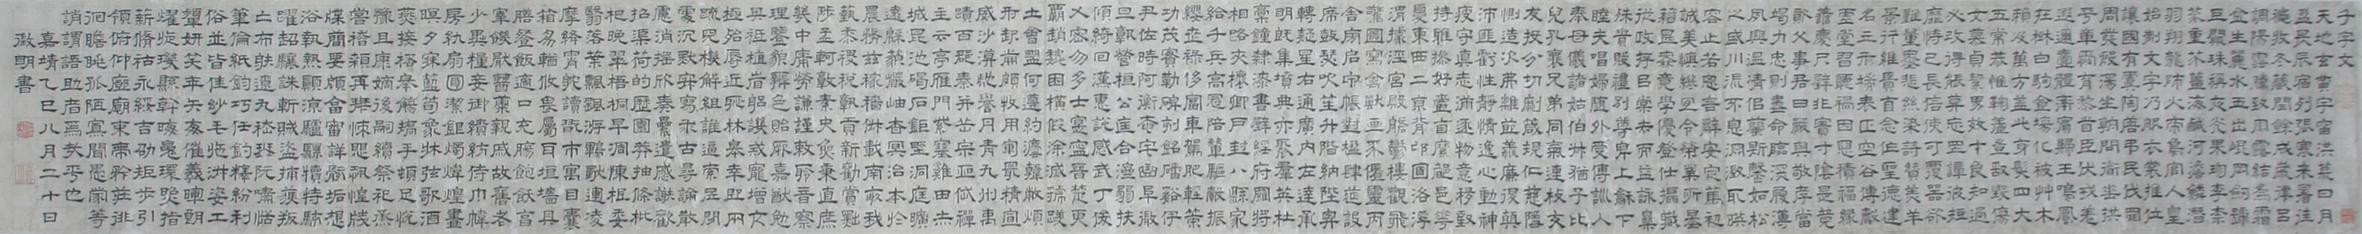 千字文
天地玄黃宇宙洪荒日月
盈昃辰宿列張寒來暑往
秋收冬藏閏餘成歲律呂
調陽雲騰致雨露結為霜
金生麗水玉出崑岡劍號
巨闕珠稱夜光果珍李柰
菜重芥薑海鹹河淡鱗潛
羽翔龍師火帝鳥官人皇
始制文字乃服衣裳推位
讓國有虞陶唐弔民伐罪
周發殷湯坐朝問道垂拱
平章愛育黎首臣伏戎羌
遐邇壹體率賓歸王鳴鳳
在樹白駒食場化被草木
賴及萬方蓋此身髮四大
五常恭惟鞠養豈敢毀傷
女慕貞絜男效才良知過
必改得能莫忘罔談彼短
靡恃己長信使可覆器欲
難量墨悲絲染詩讚羔羊
景行維賢克念作聖德建
名立形端表正空谷傳聲
虛堂習聽禍因惡積福緣
善慶尺璧非寶寸陰是競
資父事君曰嚴與敬孝當
竭力忠則盡命臨深履薄
夙興溫凊似蘭斯馨如松
之盛川流不息淵澄取映
容止若思言辭安定篤初
誠美慎終宜令榮業所基
籍甚無竟學優登仕攝職
從政存以甘棠去而益詠樂
殊貴賤禮別尊卑上和下
睦夫唱婦隨外受傅訓入
奉母儀諸姑伯叔猶子比
兒孔懷兄弟同氣連枝交
友投分切磨箴規仁慈隱
惻造次弗離節義廉退顛
沛匪虧性靜情逸心動神
疲守真志滿逐物意移堅
持雅操好爵自縻都邑華
夏東西二京背邙面洛浮
渭據涇宮殿盤鬱樓觀飛
驚圖寫禽獸畫彩仙靈丙
舍傍啟甲帳對楹肆筵設
席鼓瑟吹笙升階納陛弁
轉疑星右通廣內左達承
明既集墳典亦聚群英杜
稾鍾隸漆書壁經府羅將
相路俠槐卿戶封八縣家
給千兵高冠陪輦驅轂振
纓世祿侈富車駕肥輕策
功茂實勒碑刻銘磻溪伊
尹佐時阿衡奄宅曲阜微
旦孰營桓公匡合濟弱扶
傾綺迴漢惠說感武丁俊
乂密勿多士寔寧晉楚更
霸趙魏困橫假途滅虢踐
土會盟何遵約法韓弊煩
刑起翦頗牧用軍最精宣
威沙漠馳譽丹青九州禹
跡百郡秦并嶽宗恆岱禪
主云亭鴈門紫塞雞田赤
城昆池碣石鉅野洞庭曠
遠綿邈巖岫杳冥治本於
農務茲稼穡俶載南畝我
藝黍稷稅熟貢新勸賞黜
陟孟軻敦素史魚秉直庶
幾中庸勞謙謹敕聆音察
理鑒貌辨色貽厥嘉猷勉
其祗植省躬譏誡寵增抗
極殆辱近恥林皋幸即兩
疏見機解組誰逼索居閒
處沉默寂寥求古尋論散
慮逍遙欣奏累遣慼謝歡
招渠荷的歷園莽抽條枇
杷晚翠梧桐早凋陳根委
翳落葉飄颻遊鵾獨運凌
摩絳霄耽讀翫市寓目囊
箱易輶攸畏屬耳垣牆具
膳餐飯適口充腸飽飫烹
宰飢厭糟糠親戚故舊老
少異糧妾御績紡侍巾帷
房紈扇圓潔銀燭煒煌晝
眠夕寐藍筍象床絃歌酒
讌接杯舉觴矯手頓足悅
豫且康嫡後嗣續祭祀蒸
嘗稽顙再拜悚懼恐惶牋
牒簡要顧答審詳骸垢想
浴執熱願涼驢騾犢特駭
躍超驤誅斬賊盜捕獲叛
亡布射遼丸嵇琴阮嘯恬
筆倫紙鈞巧任釣釋紛利
俗並皆佳妙毛施淑姿工
顰妍笑年矢每催曦暉朗
耀璇璣懸斡晦魄環照指
薪修祜永綏吉劭矩步引
領俯仰廊廟束帶矜莊徘
徊瞻眺孤陋寡聞愚蒙等
誚謂語助者焉哉乎也
嘉靖乙巳八月二十日
徵明書